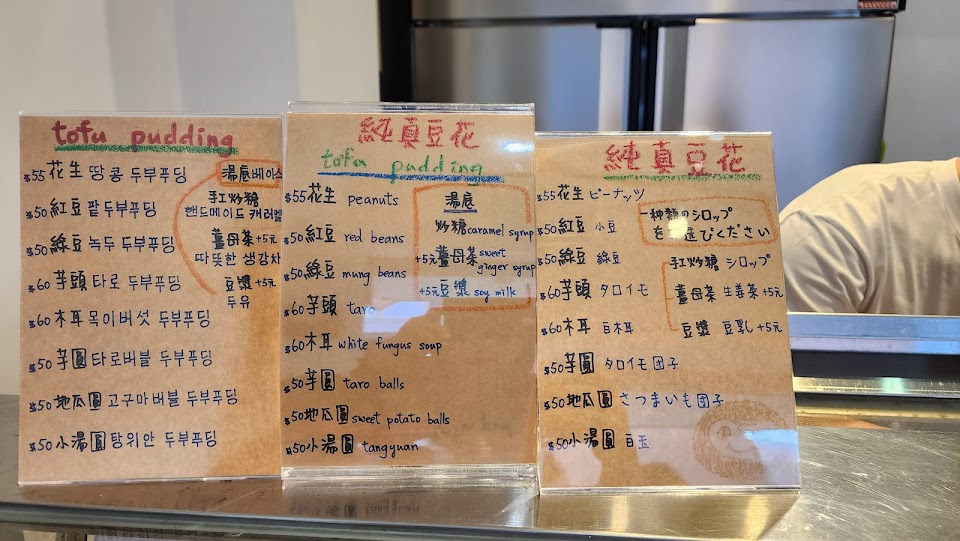 tofu pudding
$55 花生 땅콩 두부푸딩
$50 紅豆 팥두부푸딩
$50 綠豆 녹두 두부푸딩
$60 芋頭 타로 두부푸딩
$60 木耳 목이버섯 두부푸딩
$50 芋圓 타로버블 두부푸딩
$50 地瓜圓 고구마버블 두부푸딩
$50 小湯圓 탕위안 두부푸딩
湯底베이스
手工炒糖
핸드메이드 캐러멜
薑母茶+5元
따뜻한 생강차
豆漿+5元
두유
純真豆花
tofu pudding
$55 花生 peanuts
$50 紅豆 red beans
$50 綠豆 mung beans
$60 芋頭 taro
$60 木耳 white fungus soup
$50 芋圓 taro balls
$50 地瓜圓 sweet potato balls
$50 小湯圓 tangyuan
湯底
炒糖 caramel syrup
+5元 薑母茶 sweet
ginger syrup
+5元 豆漿 soy milk
純真豆花
$55 花生 ピーナッツ
$50 紅豆 小豆
$50 綠豆 綠豆
$60 芋頭 タロイモ
$60 木耳 白木耳
$50 芋圓 タロイモ団子
$50 地瓜圓 さつまいも団子
$50 小湯圓 白玉
一種類のシロップ
を選びください
手工炒糖 シロップ
薑母茶 生姜茶+5元
豆漿 豆乳+5元